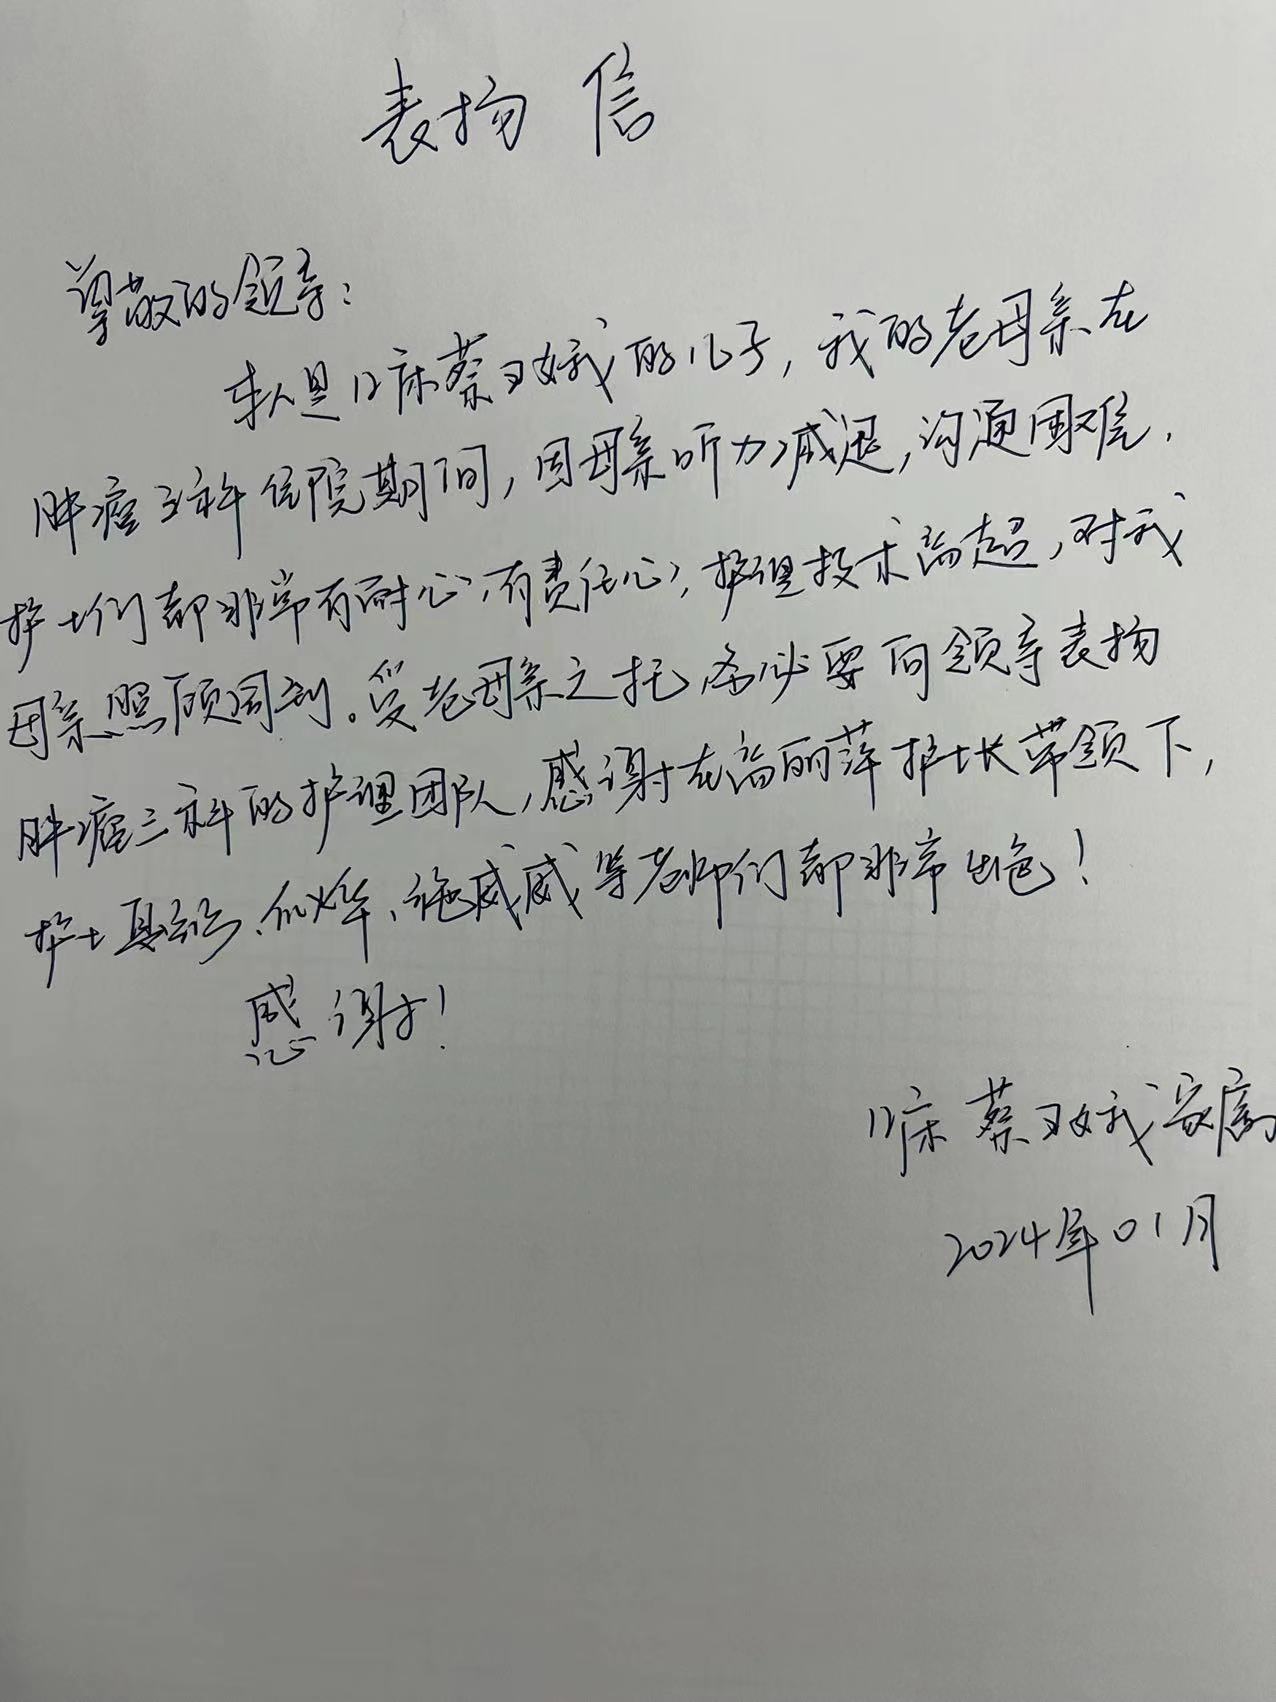 表扬信
尊敬的领导：
本人是12床蔡又娥的儿子，我的老母亲在
肿瘤三科住院期间，因母亲听力减退，沟通困难，
护士们都非常有耐心，有责任心，护理技术高超，对我
母亲照顾周到。受老母亲之托必要向领导表扬
肿瘤三科的护理团队，感谢在高丽萍护士长带领下，
护士、施威威等老师们都非常出色！
感谢！
12床蔡又娥家属
2024年01月